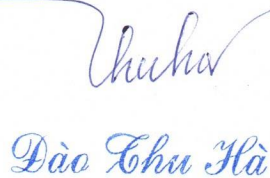 Thuha
Đào Thu Hà